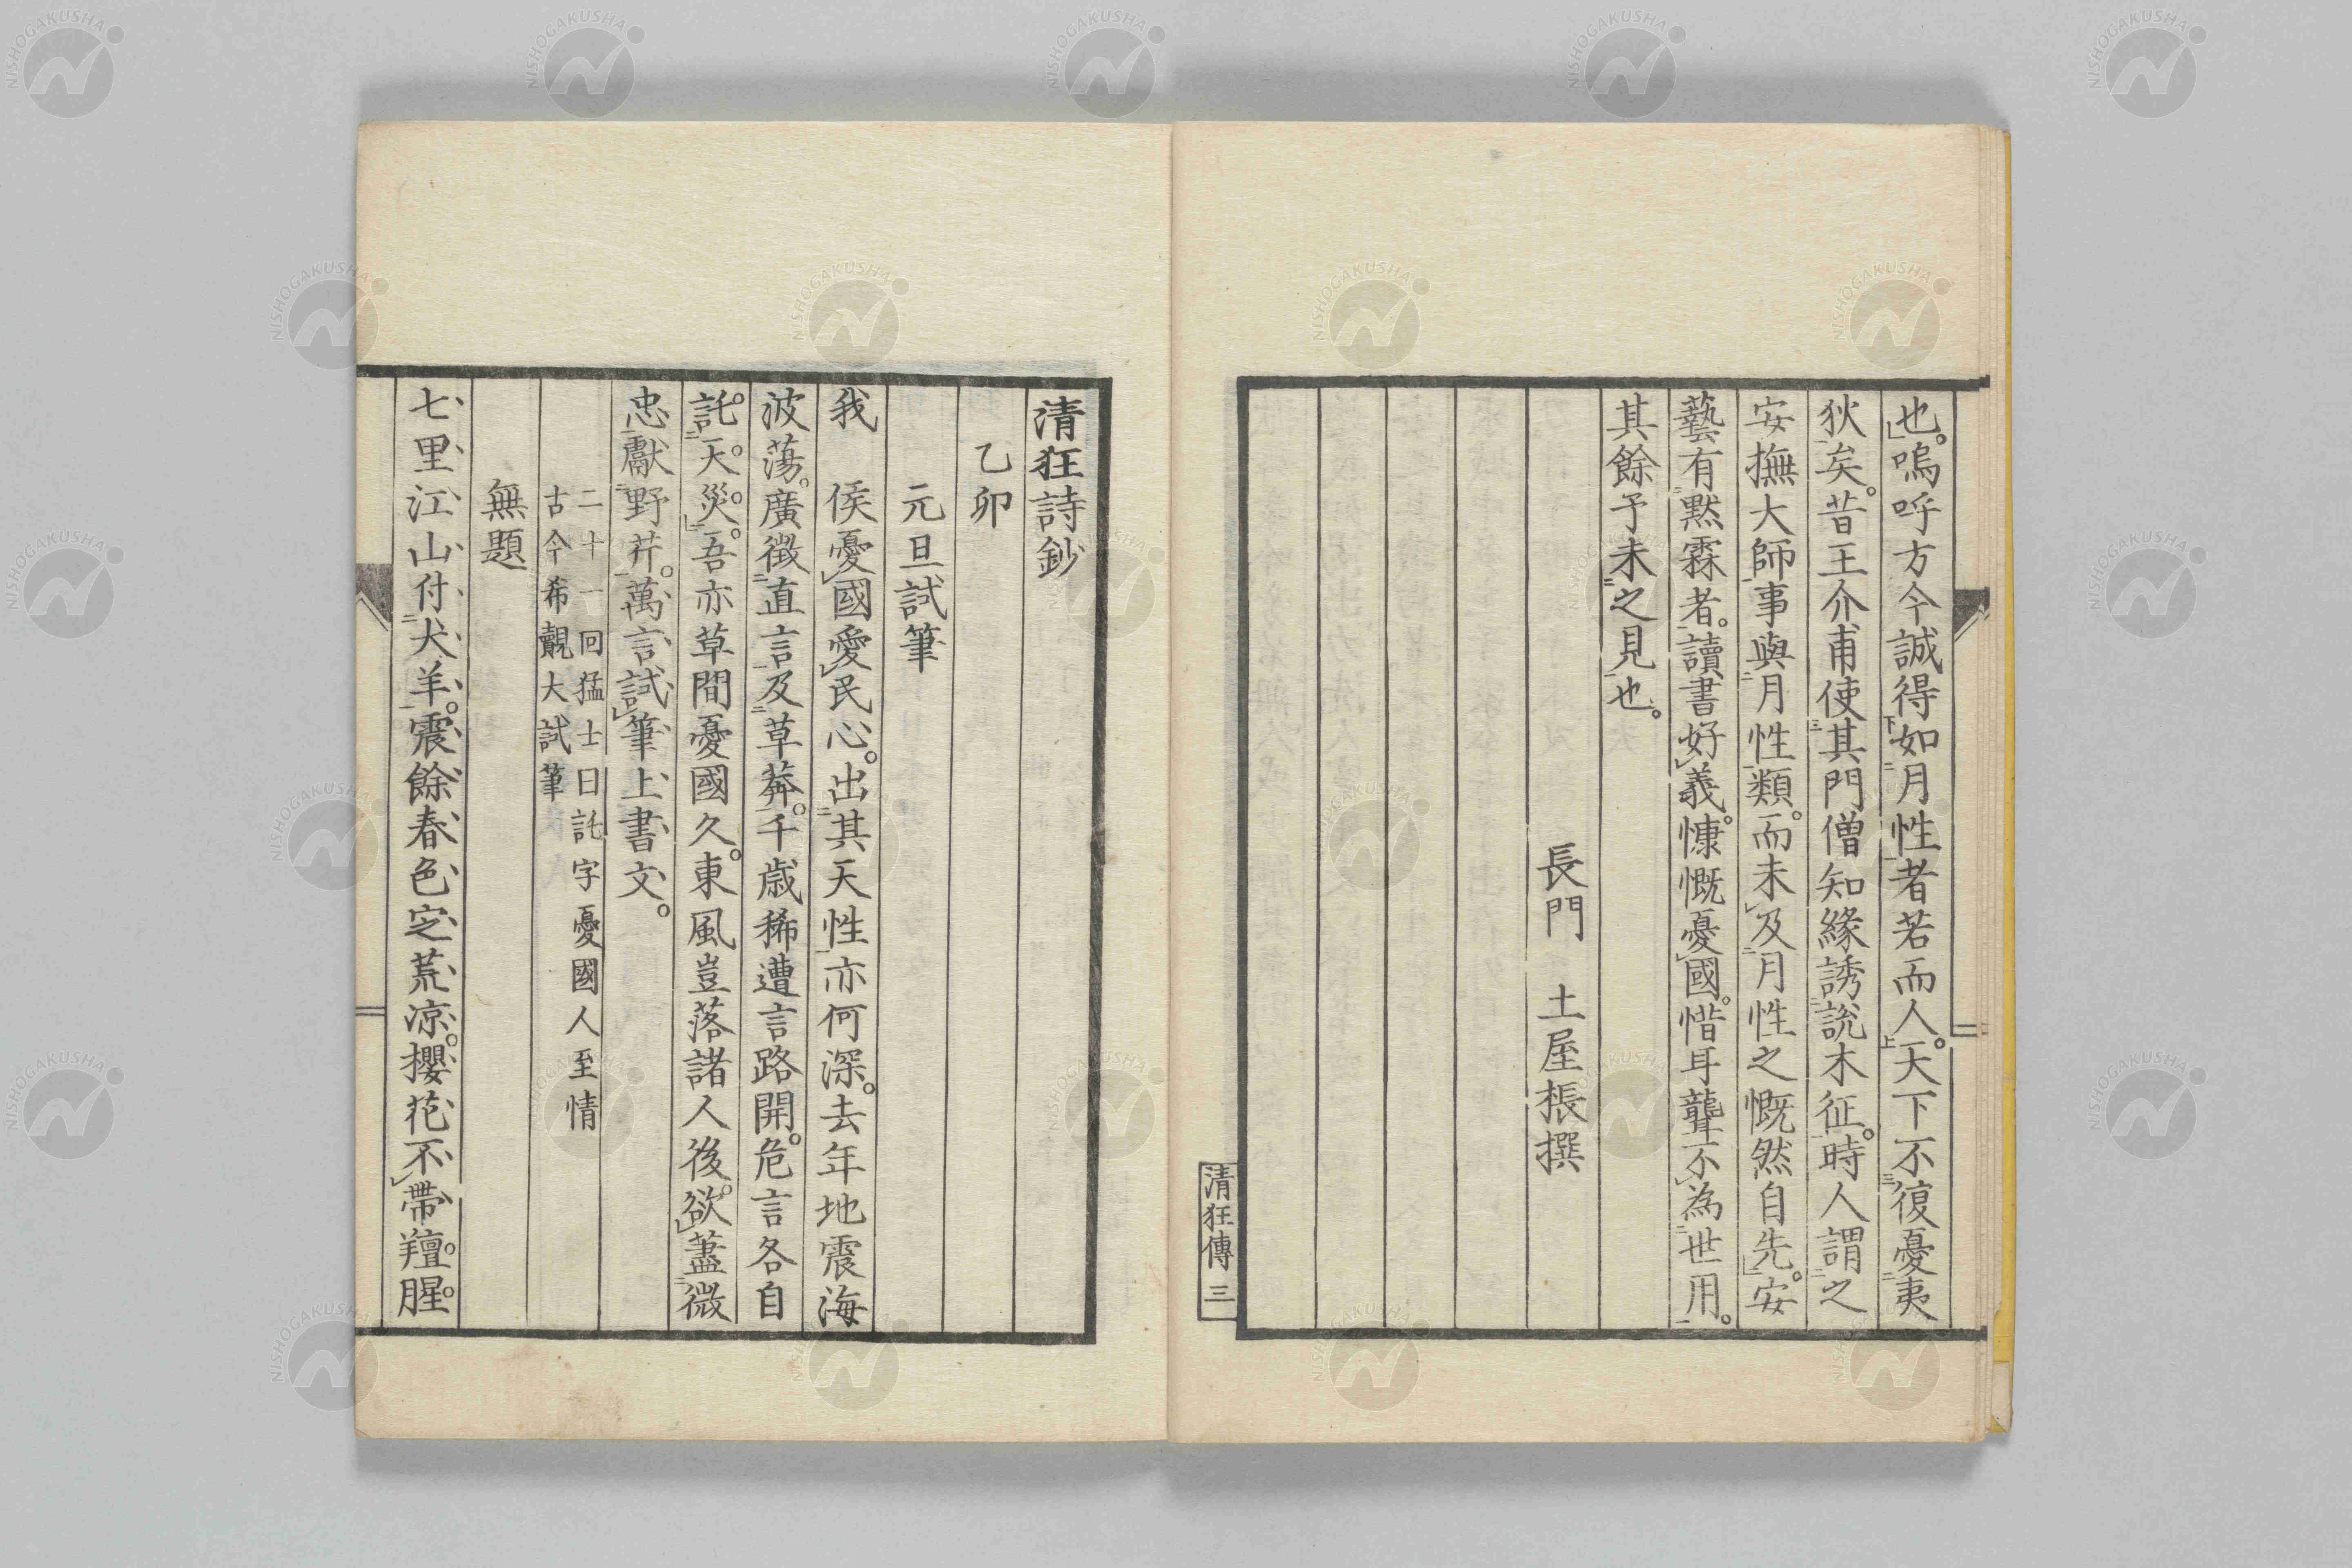 也。嗚呼方今誠得如月性者若而人。天下不復憂夷
狄矣。昔王介甫使其門僧知緣誘說木征。時人謂之
安撫大師事與月性類。而未及月性之慨然自先。安
藝有默霖者。讀書好義。慷慨憂國。惜耳聾不為世用。
其餘予未之見也。
長門 土屋棖撰
清狂傳 三
清狂詩鈔
乙卯
元旦試筆
我 侯憂國愛民心。出其天性亦何深。去年地震海
波蕩。廣徵直言及草莽。千歲稀遭言路開。危言各自
託。天災。吾亦草間憂國久。東風豈落諸人後。欲藎微
忠獻野芹。萬言試筆上書文。
二十一回猛士曰託字憂國人至情
古今希覯大試筆
無題
七里江山付犬羊。震餘春色定荒凉。櫻花不帶羶腥
NISHOGAKUSHA